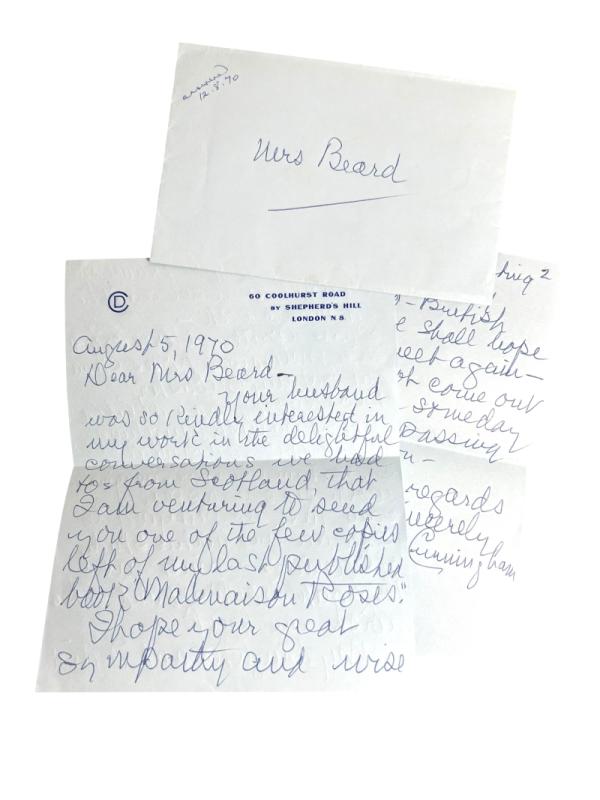 answered
12.8.70
Mrs Beard
CD
60 COOLHURST ROAD
BY SHEPHERD'S HILL
LONDON N 8
August 5, 1970
Dear Mrs Beard —
Your husband
was so kindly interested in
my work in the delightful
conversations we had
to & from Scotland, that
I am venturing to send
you one of the few copies
left of my last published
book "Malmaison Roses."
I hope your great
sympathy and wise
2
British
shall hope
meet again —
come out
someday
passing
regards
Cunningham